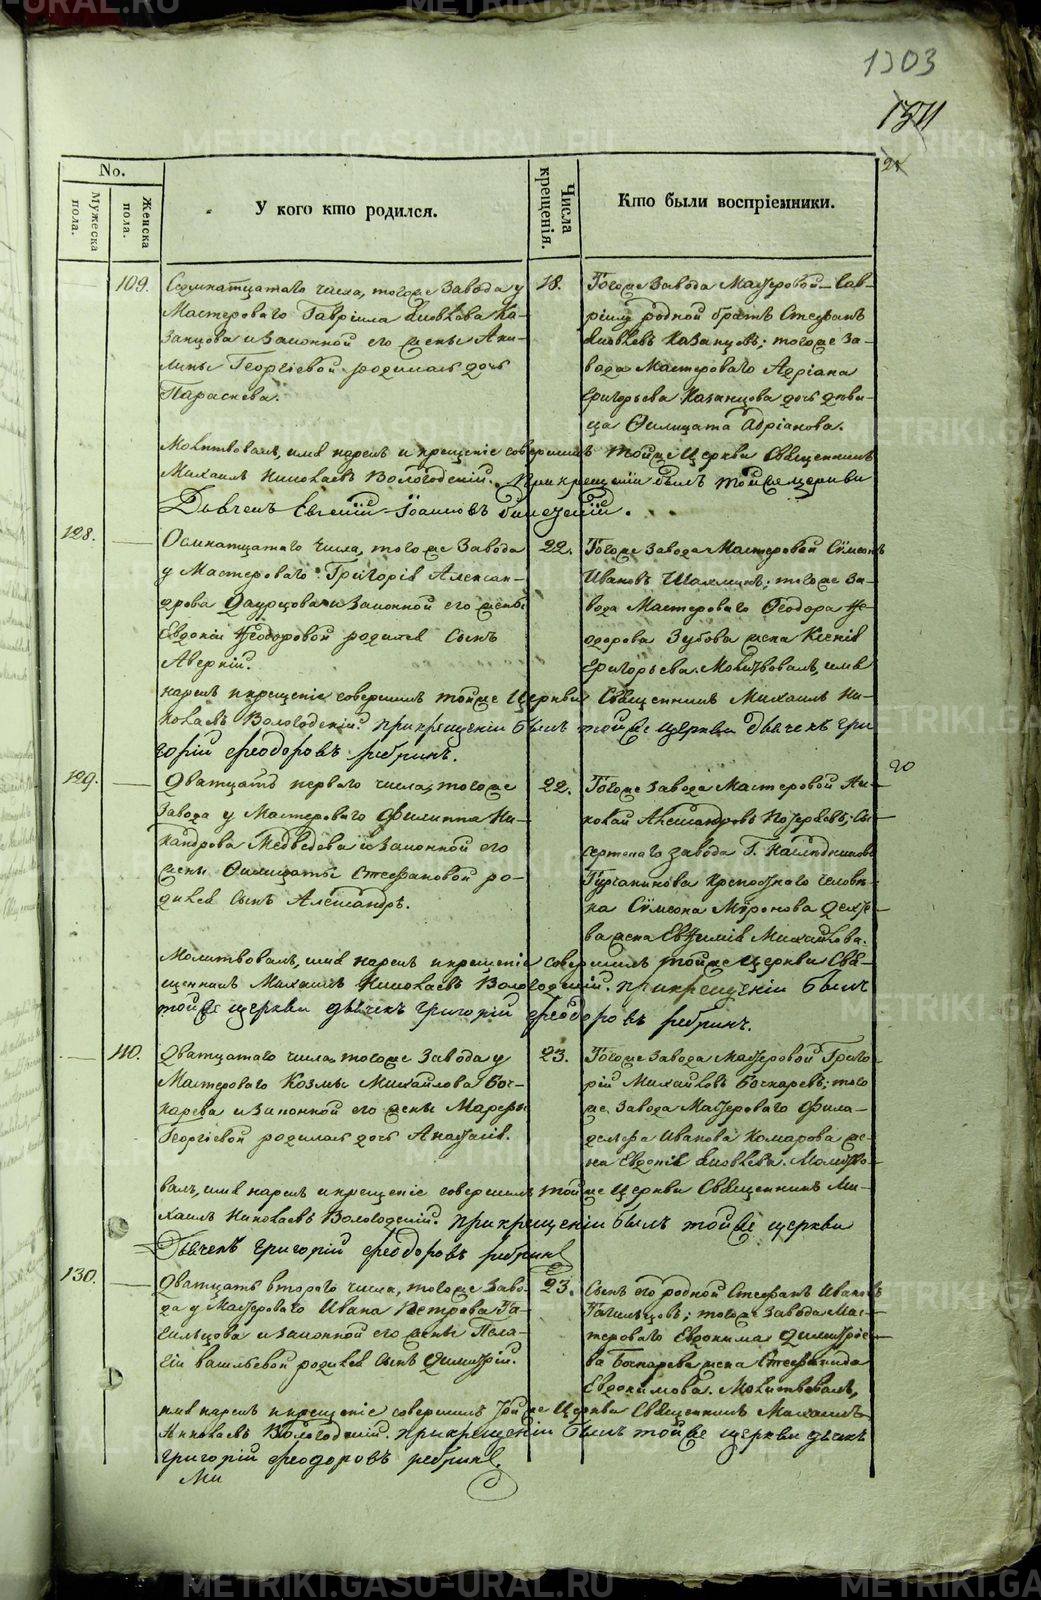 METRIKI.GASU-URAL.RU
1303
1511
No.
Мужеска пола.
Женска пола.
У кого кто родился.
Числа крещенія.
Кто были воспріемники.
109.
Седмнатцатаго числа, тогоже Завода у
Мастероваго Гавріила Яковлева Ка-
занцова и законной его жены Аки-
лины Георгіевой родилась дочь
Параскева.
18.
Тогоже Завода Мастеровой Гав-
ріилу родной братъ Стефанъ
Яковлевъ Казанцовъ; тогоже За-
вода Мастероваго Адріана
Григорьева Казанцова дочь дѣви-
ца Филицата Адріанова.
Молитвовалъ, имя нарекъ и крещеніе совершилъ тойже Церкви Священникъ
Михаилъ Николаевъ Вологодскій. При крещеніи былъ тойже церкви
Дьячекъ Евгеній Іоанновъ
128.
Осмнатцатаго числа, тогоже Завода
у Мастероваго Григорія Алексан-
дрова и законной его жены
Евдокіи Феодоровой родился сынъ
Аверкій.
22.
Тогоже Завода Мастеровой Сѵмеонъ
Ивановъ тогоже За-
вода Мастероваго Феодора Фе-
дорова Зубова жена Ксенія
Григорьева. Молитвовалъ, имя
нарекъ и крещеніе совершилъ тойже Церкви Священникъ Михаилъ Ни-
колаевъ Вологодскій. При крещеніи былъ тойже церкви дьячекъ Гри
горій Феодоровъ Ребринъ.
129.
Дватцать перваго числа, тогоже
Завода у Мастероваго Филиппа Ни-
кандрова Медведева и законной его
жены Филицаты Стефановой ро-
дился сынъ Александръ.
22.
20
Тогоже Завода Мастеровой Ни-
колай Александровъ Сы-
сертскаго завода Г. Наследниковъ
Турчанинова крепостнаго человѣ-
ка Сѵмеона Мѵронова
жена Евѳимія Михайлова.
Молитвовалъ, имя нарекъ и крещеніе совершилъ тойже Церкви Свя-
щенникъ Михаилъ Николаевъ Вологодскій. При крещеніи былъ
тойже церкви дьячекъ Григорій Феодоровъ Ребринъ.
110.
Дватцатаго числа, тогоже Завода у
Мастероваго Козмы Михайлова Боч-
карева и законной его жены Марфы
Георгіевой родилась дочь Анастасія.
23.
Тогоже Завода Мастеровой Григо-
рій Михайловъ Бочкаревъ; того
же Завода Мастероваго Фила-
делфа Иванова Комарова же-
на Евдокія Яковлева. Молитво-
валъ, имя нарекъ и крещеніе совершилъ тойже Церкви Священникъ Ми-
хаилъ Николаевъ Вологодскій. При крещеніи былъ тойже церкви
Дьячекъ Григорій Феодоровъ Ребринъ
130.
Дватцать втораго числа, тогоже Заво-
да у Мастероваго Ивана Петрова Га-
сильцова и законной его жены Пела-
гіи Васильевой родился сынъ Димитрій.
23.
Сынъ его родной Стефанъ Ивановъ
тогоже Завода Мас-
тероваго Евдокима Димитріе-
ва Бочкарева жена Стефанида
Евдокимова. Молитвовалъ,
имя нарекъ и крещеніе совершилъ тойже Церкви Священникъ Михаилъ
Николаевъ Вологодскій. При крещеніи былъ тойже церкви дьячекъ
Григорій Феодоровъ Ребринъ.